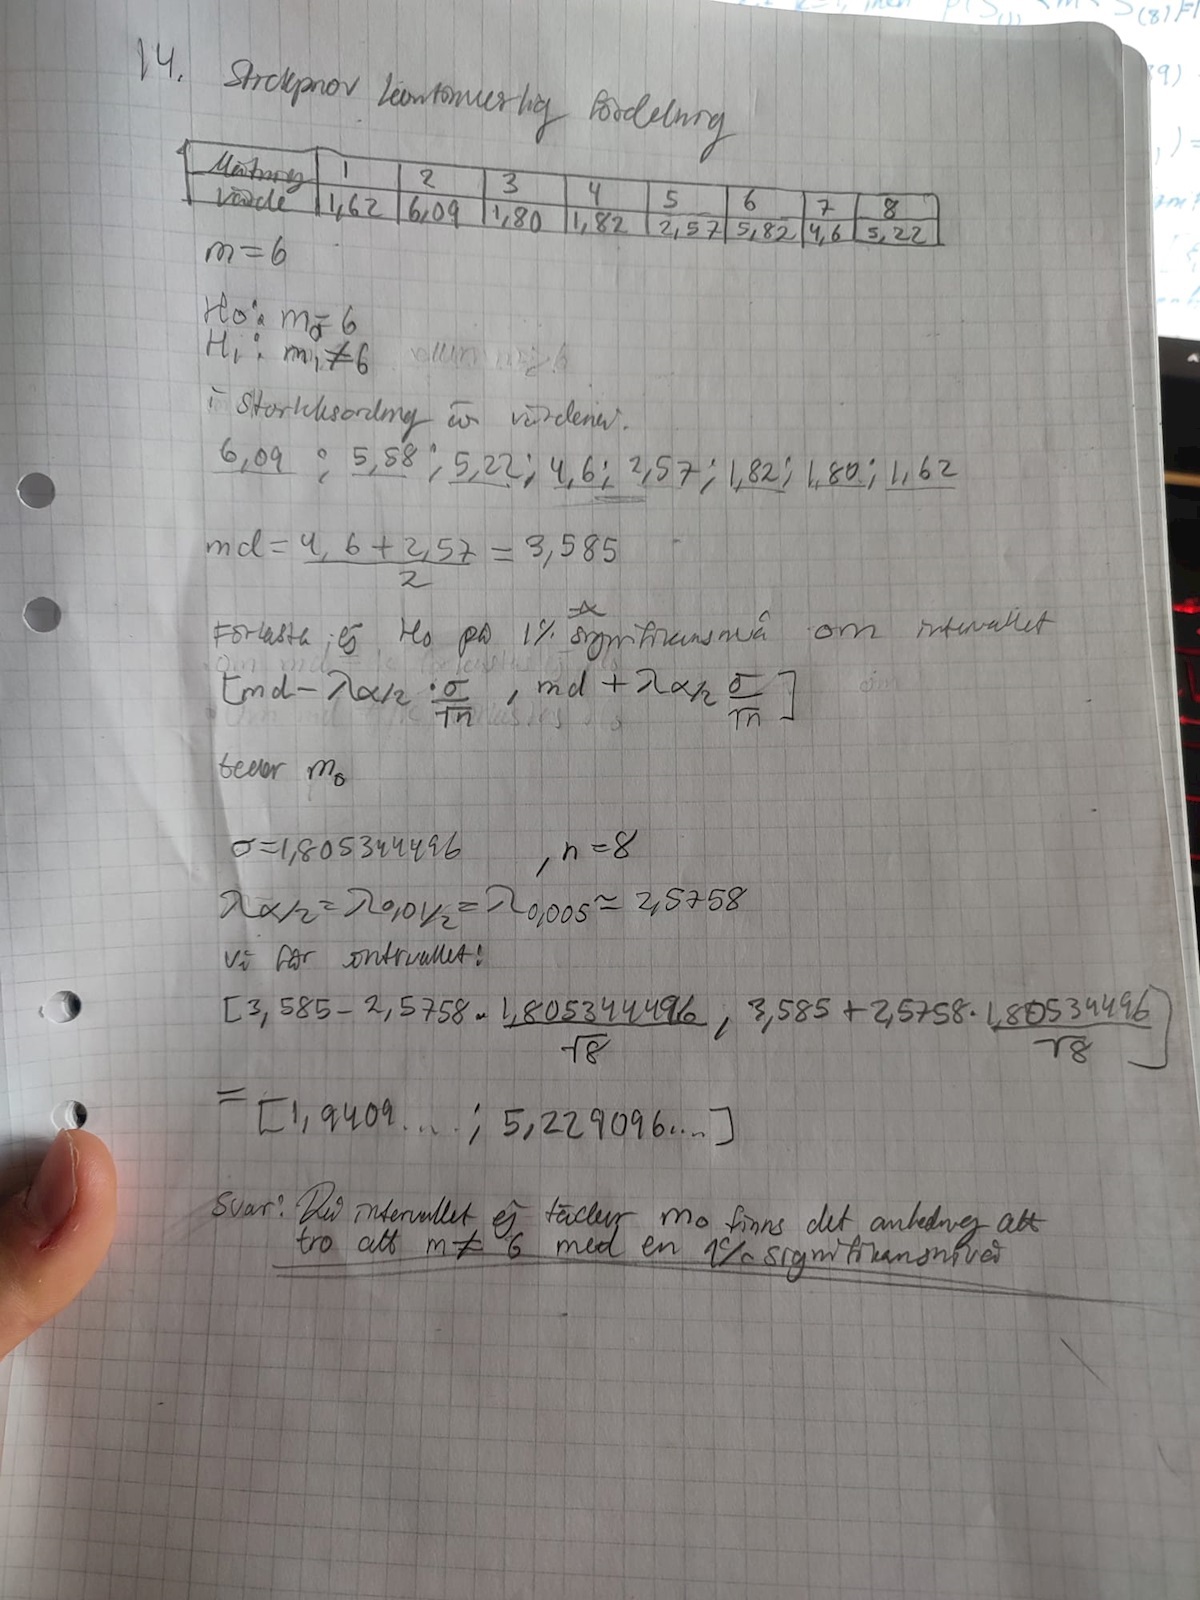 14. Stickprov kontinuerlig fördelning
Mätning 1 2 3 4 5 6 7 8
värde 1,62 6,09 1,80 1,82 2,57 5,82 4,6 5,22
m=6
H0: m0=6
H1: m1≠6
i storleksording är värdena:
6,09 ; 5,58 ; 5,22 ; 4,6 ; 2,57 ; 1,82 ; 1,80 ; 1,62
md = (4,6 + 2,57)/2 = 3,585
Förkasta ej H0 på 1% signifikansnivå om intervallet
[md - λα/2 · σ/√n , md + λα/2 σ/√n]
täcker m0
σ=1,805344496 , n=8
λα/2 = λ0,01/2 = λ0,005 ≃ 2,5758
vi får intervallet:
[3,585 - 2,5758 · 1,805344496/√8 , 3,585 + 2,5758 · 1,80534496/√8]
= [1,9409... ; 5,229096...]
Svar: Då intervallet ej täcker m0 finns det anledning att
tro att m ≠ 6 med en 1% signifikansnivå